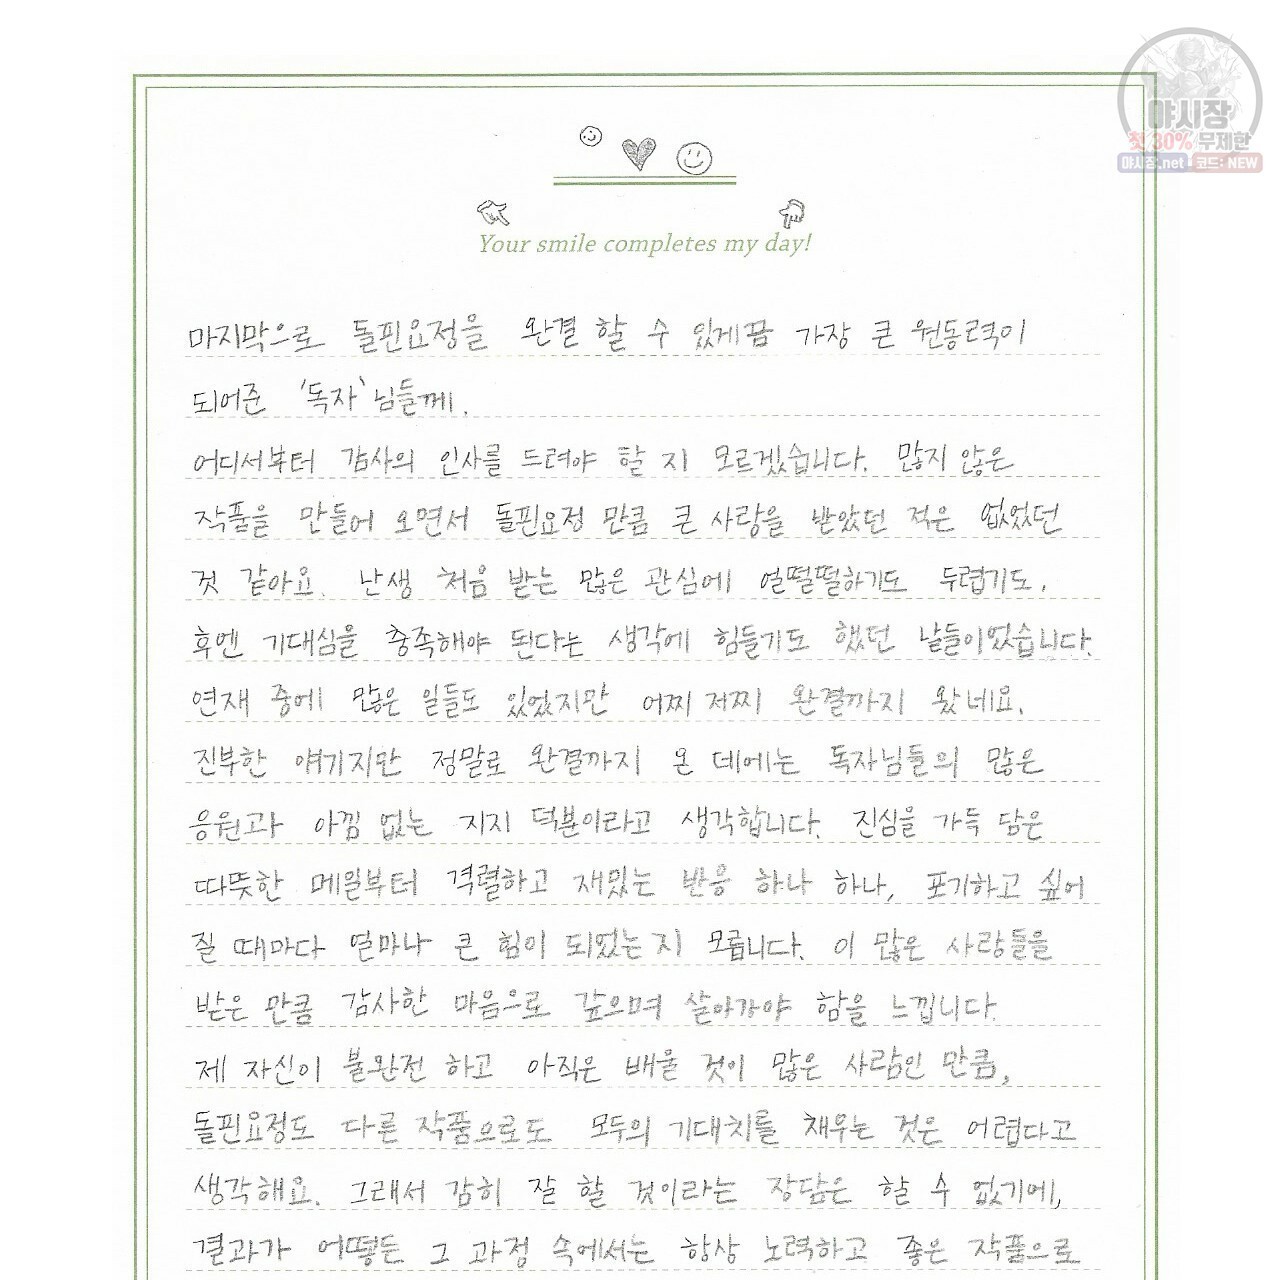 야시장
첫 30% 무제한
야시장.net 코드: NEW
Your smile completes my day!
마지막으로 돌핀요정을 완결 할 수 있게끔 가장 큰 원동력이
되어준 '독자'님들께.
어디서부터 감사의 인사를 드려야 할 지 모르겠습니다. 많지 않은
작품을 만들어 오면서 돌핀요정 만큼 큰 사랑을 받았던 적은 없었던
것 같아요. 난생 처음 받는 많은 관심에 얼떨떨하기도 두렵기도.
후엔 기대심을 충족해야 된다는 생각에 힘들기도 했던 날들이었습니다.
연재 중에 많은 일들도 있었지만 어찌 저찌 완결까지 왔네요.
진부한 얘기지만 정말로 완결까지 온 데에는 독자님들의 많은
응원과 아낌 없는 지지 덕분이라고 생각합니다. 진심을 가득 담은
따뜻한 메일부터 격렬하고 재밌는 반응 하나 하나, 포기하고 싶어
질 때마다 얼마나 큰 힘이 되었는지 모릅니다. 이 많은 사랑들을
받은 만큼 감사한 마음으로 갚으며 살아가야 함을 느낍니다.
제 자신이 불완전 하고 아직은 배울 것이 많은 사람인 만큼,
돌핀요정도 다른 작품으로도 모두의 기대치를 채우는 것은 어렵다고
생각해요. 그래서 감히 잘 할 것이라는 장담은 할 수 없기에,
결과가 어떻든 그 과정 속에서는 항상 노력하고 좋은 작품으로